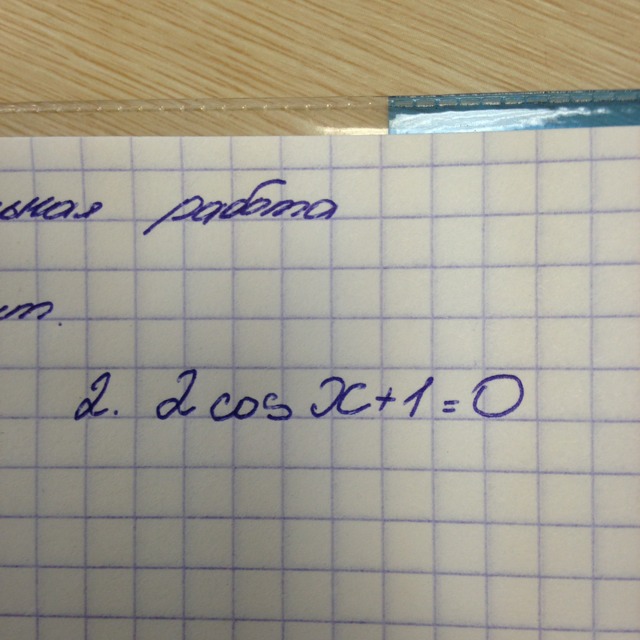 ьная работа
2. 2 cos x+1=0